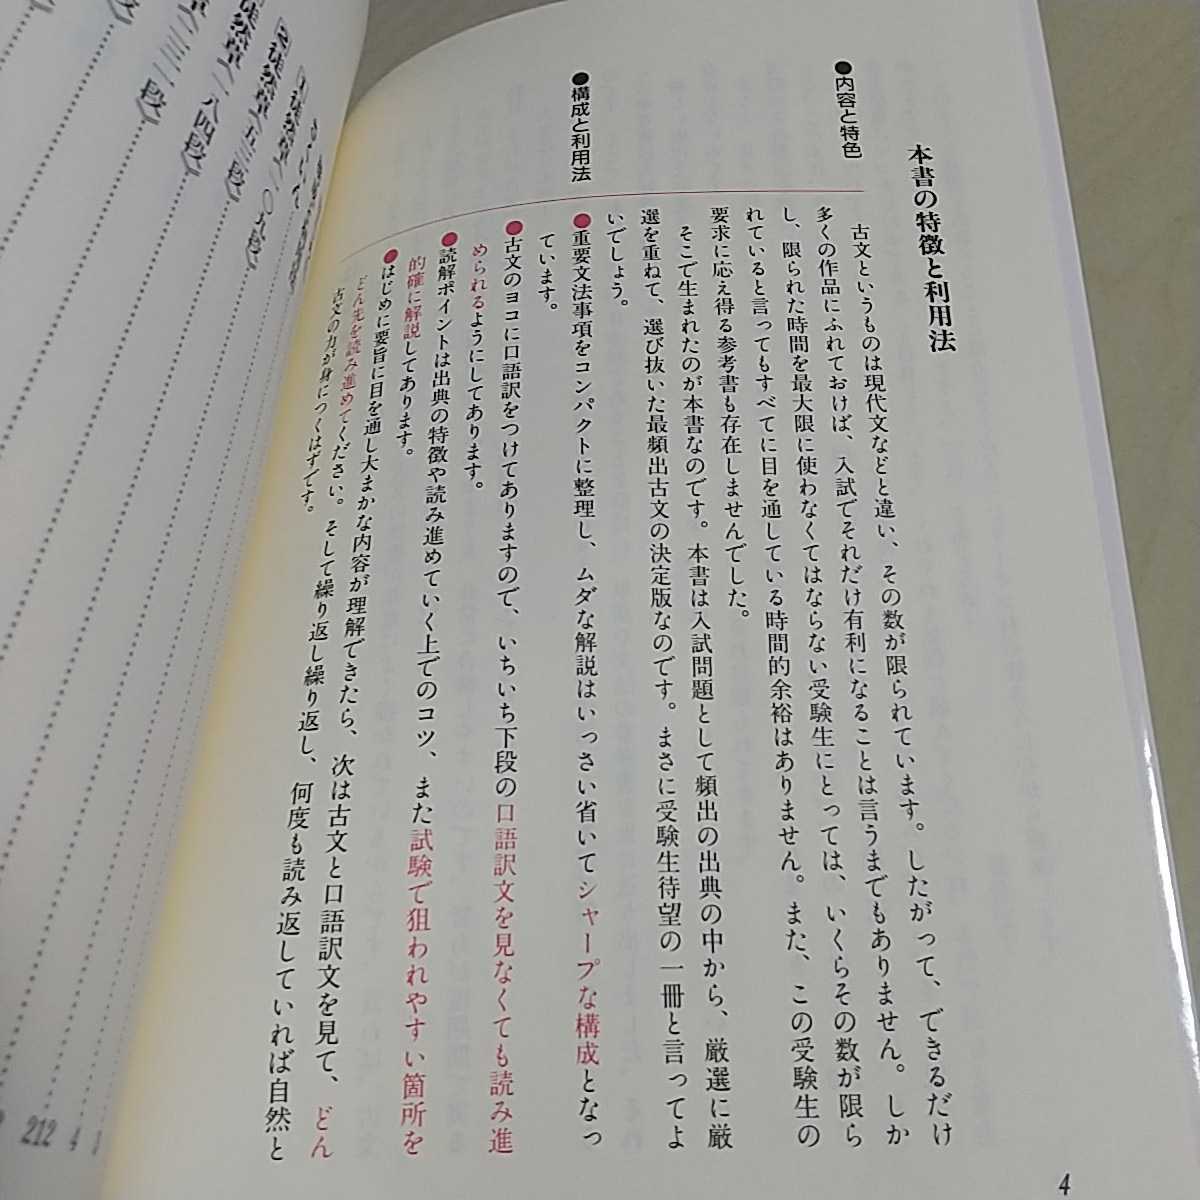 本書の特徴と利用法
●内容と特色
古文というものは現代文などと違い、その数が限られています。したがって、できるだけ
多くの作品にふれておけば、入試でそれだけ有利になることは言うまでもありません。しか
し、限られた時間を最大限に使わなくてはならない受験生にとっては、いくらその数が限ら
れていると言ってもすべてに目を通している時間的余裕はありません。また、この受験生の
要求に応え得る参考書も存在しませんでした。
そこで生まれたのが本書なのです。本書は入試問題として頻出の出典の中から、厳選に厳
選を重ねて、選び抜いた最頻出古文の決定版なのです。まさに受験生待望の一冊と言ってよ
いでしょう。
●構成と利用法
●重要文法事項をコンパクトに整理し、ムダな解説はいっさい省いてシャープな構成となっ
ています。
●古文のヨコに口語訳をつけてありますので、いちいち下段の口語訳文を見なくても読み進
められるようにしてあります。
●読解ポイントは出典の特徴や読み進めていく上でのコツ、また試験で狙われやすい箇所を
的確に解説してあります。
●はじめに要旨に目を通し大まかな内容が理解できたら、次は古文と口語訳文を見て、どん
どん先を読み進めてください。そして繰り返し繰り返し、何度も読み返していれば自然と
古文の力が身につくはずです。
4
1 徒然草〈二〇九段〉
2 徒然草〈五三段〉
徒然草〈一八四段〉
212
4